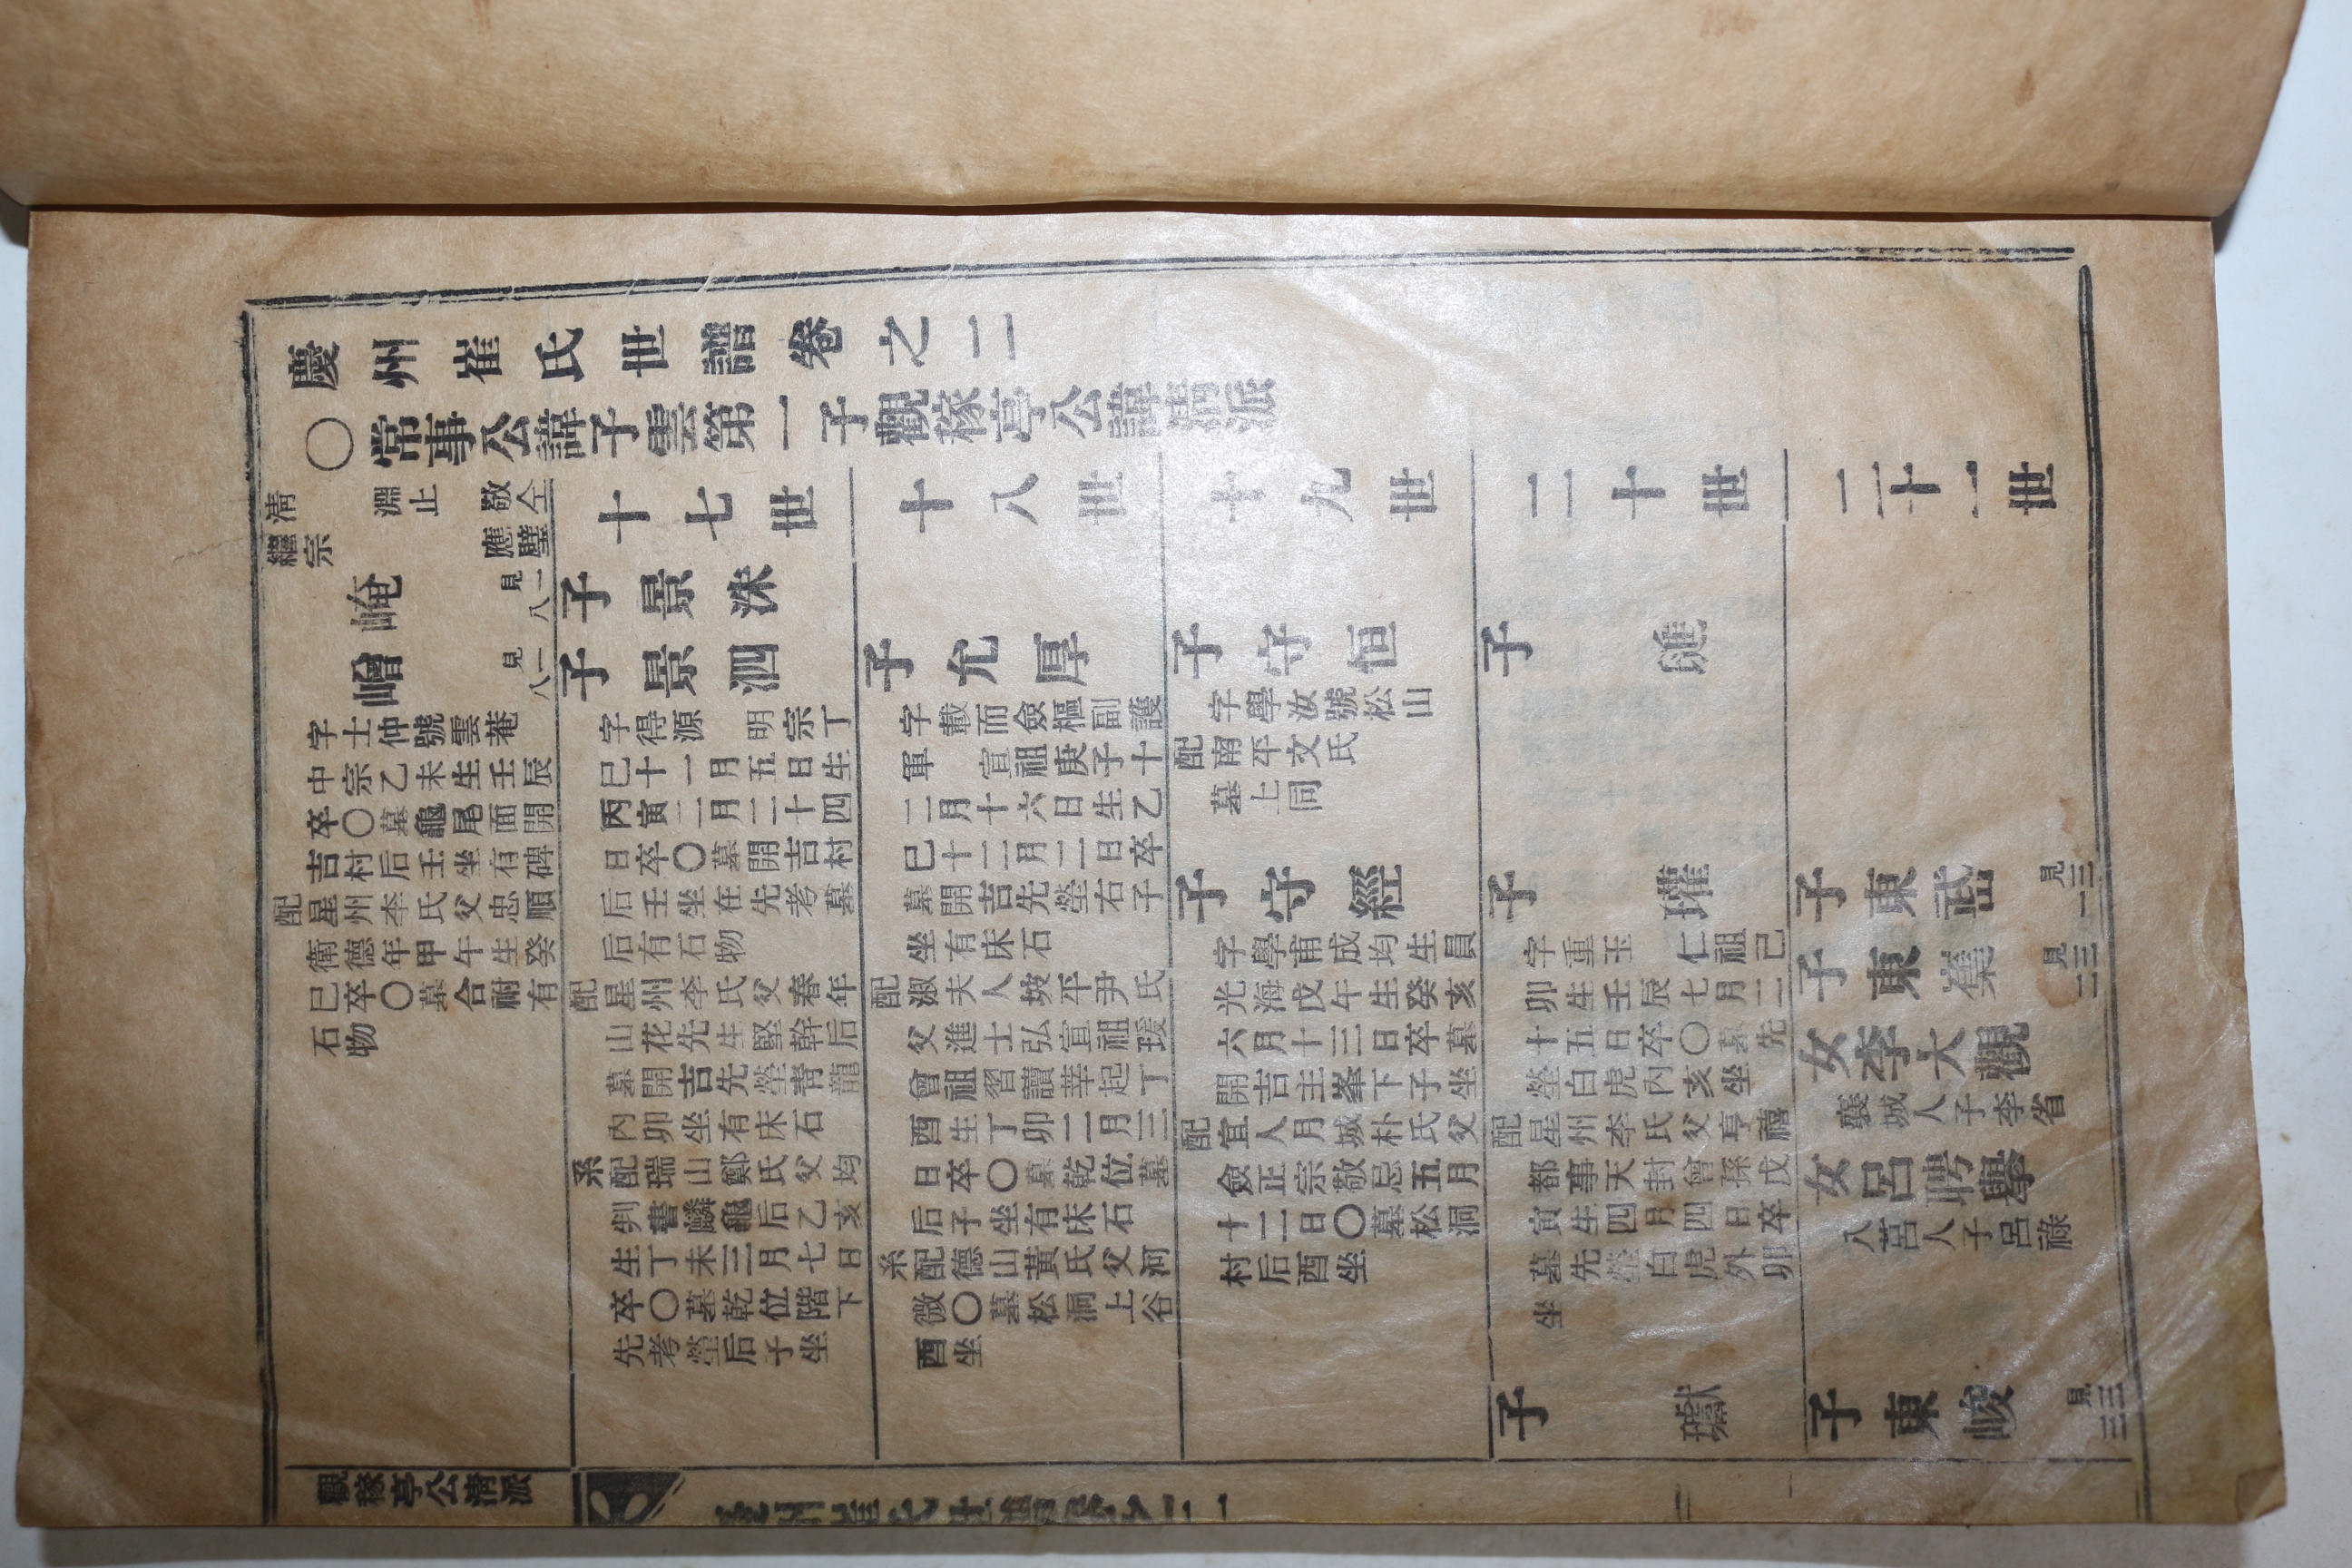 慶州崔氏世譜卷之二
〇常事公諱子雲第一子觀稼亭公諱淸派
淸 淵止 敬仝
繼宗 應壁
崦 見一八
嶒 見一八
字士仲號雲菴
中宗乙未生壬辰
卒〇墓龜尾面開
吉村后壬坐有碑
配星州李氏父忠順
衛德年甲午生癸
巳卒〇墓合祔有
石物
十七世
子景洙
子景泗
字得源 明宗丁
巳十一月五日生
丙寅二月二十四
日卒〇墓開吉村
后壬坐在先考墓
后有石物
配星州李氏父春年
山花先生堅幹后
墓開吉先塋靑龍
內卯坐有床石
系配瑞山鄭氏父均
判書麟龜后乙亥
生丁未三月七日
卒〇墓乾位階下
先考塋后子坐
十八世
子允厚
字載而僉樞副護
軍 宣祖庚子十
二月十六日生乙
巳十二月二日卒
墓開吉先塋右子
坐有床石
配淑夫人坡平尹氏
父進士弘宣祖瑗
曾祖習讀莘起丁
酉生丁卯二月三
日卒〇墓乾位墓
后子坐有床石
系配德山黃氏父河
微〇墓松洞上谷
酉坐
十九世
子守恒
字學汝號松山
配南平文氏
墓上同
子守經
字學甫成均生員
光海戊午生癸亥
六月十三日卒墓
開吉主峯下子坐
配宜人月城朴氏父
僉正宗敬忌五月
十二日〇墓松洞
村后酉坐
二十世
子
子 瓘
字重玉 仁祖己
卯生壬辰七月二
十五日卒〇墓先
塋白虎內亥坐
配星州李氏父亨禧
都事天封曾孫戊
寅生四月四日卒
墓先塋白虎外卯
坐
子 瓛
二十一世
子東㟁 見三一
子東嶲 見三二
女李大觀
襄城人子李省
女呂聘擧
八莒人子呂祿
子東峻 見三三
觀稼亭公淸派
慶州崔氏世譜卷之二